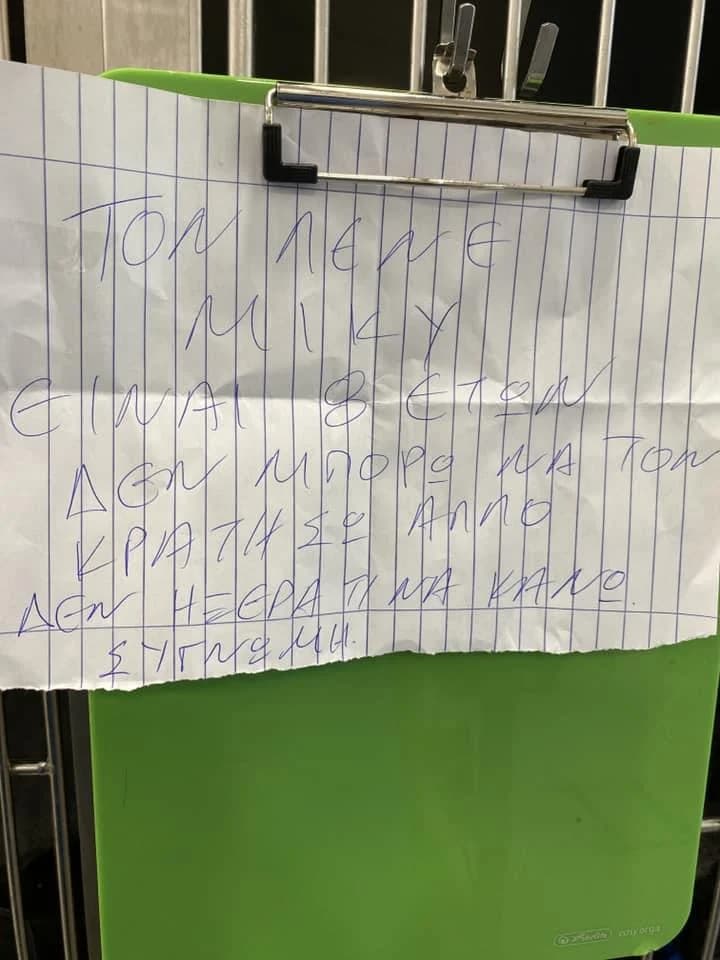 ΤΟΝ ΛΕΝΕ
ΜΙΚΥ
ΕΙΝΑΙ 8 ΕΤΩΝ
ΔΕΝ ΜΠΟΡΩ ΝΑ ΤΟΝ
ΚΡΑΤΗΣΩ ΑΛΛΟ
ΔΕΝ ΗΞΕΡΑ ΤΙ ΝΑ ΚΑΝΩ.
ΣΥΓΝΩΜΗ.
herlitz easy orga